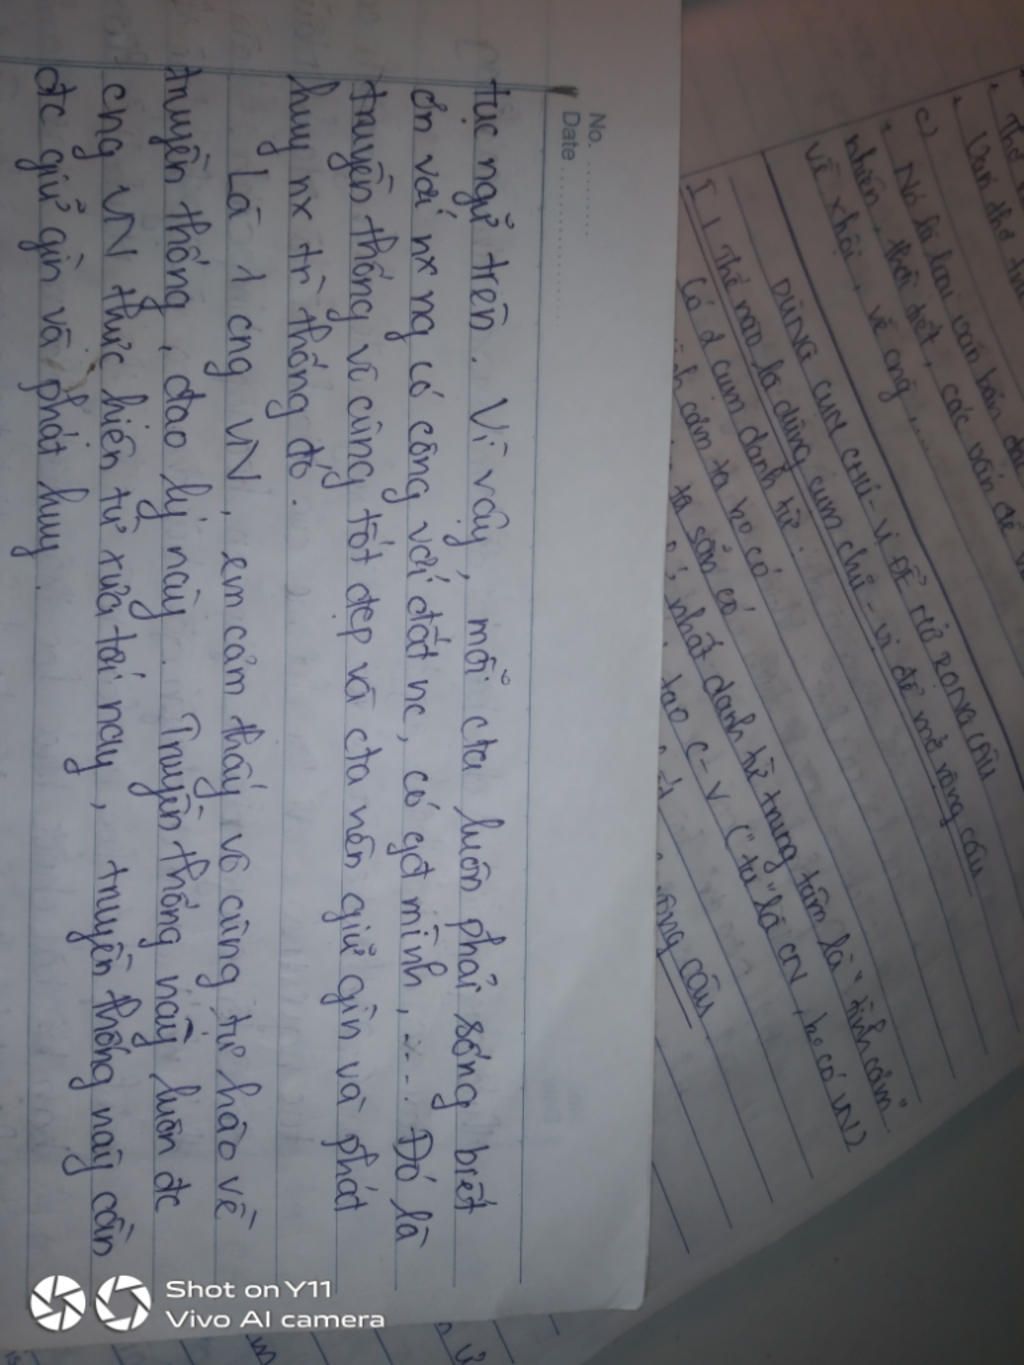 No. ..........
Date ....................
tục ngữ trên. Vì vậy, mỗi cta luôn phải sống biết
ơn với nx ng có công với đất nc, có gđ mình, ... Đó là
truyền thống vô cùng tốt đẹp và cta nên giữ gìn và phát
huy nx tr thống đó.
Là 1 cng VN, em cảm thấy vô cùng tự hào về
truyền thống, đạo lý này. Truyền thống này luôn đc
cng VN thực hiện từ xưa tới nay, truyền thống này cần
đc giữ gìn và phát huy.
c)
Nó là loại văn bản
nhiên, thời tiết, các vấn đề
về xhội, về cng, ....
DÙNG CỤM CHỦ - VỊ ĐỂ MỞ RỘNG CÂU
I / Thế nào là dùng cụm chủ - vị để mở rộng câu
Có 2 cụm danh từ:
cảm ta ko có
ta sẵn có
nhất danh từ trung tâm là "tình cảm"
tạo C - V ("ta" là CN, ko có VN)
câu
Shot on Y11
Vivo AI camera